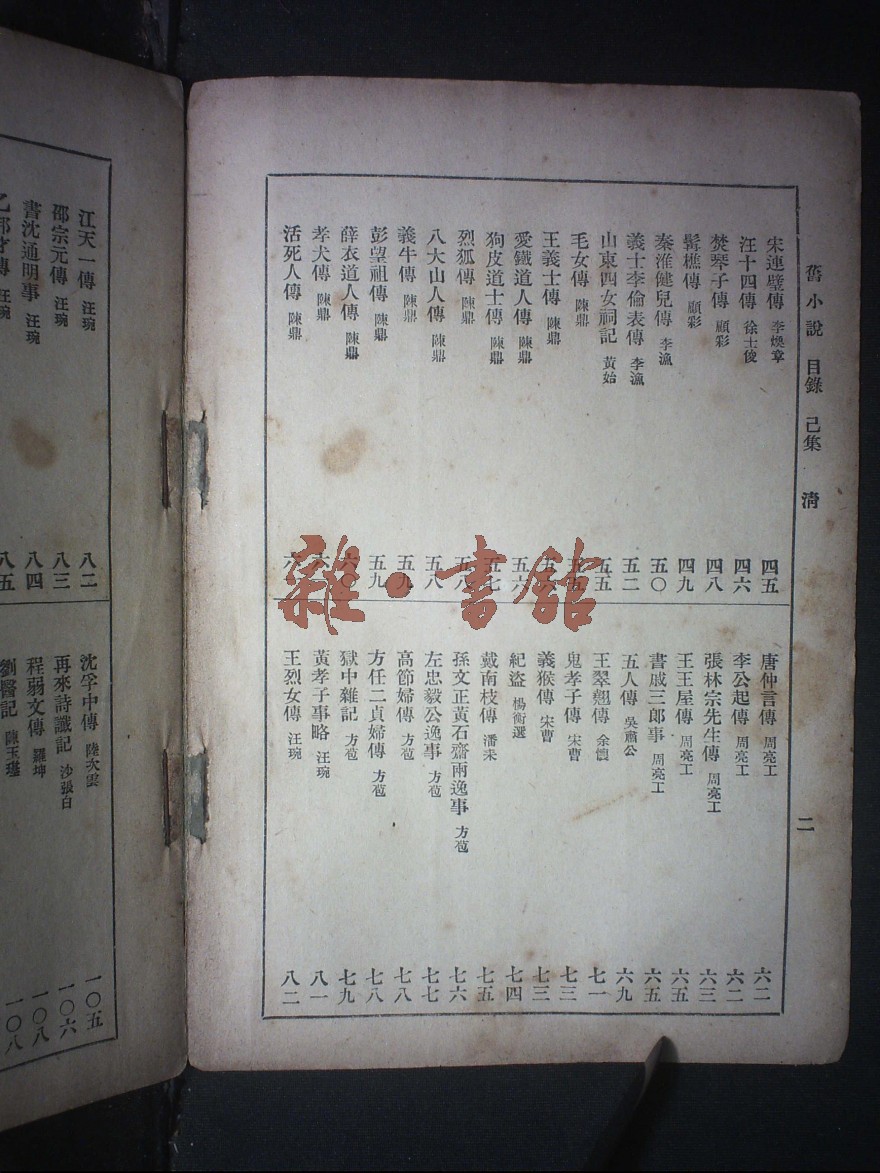 舊小說 目錄 己集 清 二
宋連璧傳 李煥章 四五
汪十四傳 徐士俊 四六
焚琴子傳 顧彩 四八
髯樵傳 顧彩 四九
秦淮健兒傳 李漁 五〇
義士李倫表傳 李漁 五二
山東四女祠記 黃始 五五
毛女傳 陳鼎
王義士傳 陳鼎
愛鐵道人傳 陳鼎 五六
狗皮道士傳 陳鼎 五七
烈狐傳 陳鼎 五八
八大山人傳 陳鼎 五八
義牛傳 陳鼎 五九
彭望祖傳 陳鼎 五九
薛衣道人傳 陳鼎 六〇
孝犬傳 陳鼎
活死人傳 陳鼎
唐仲言傳 周亮工 六二
李公起傳 周亮工 六二
張林宗先生傳 周亮工 六三
王王屋傳 周亮工 六五
書戚三郎事 周亮工 六五
五人傳 吳肅公 六九
王翠翹傳 余懷 七一
鬼孝子傳 宋曹 七三
義猴傳 宋曹 七三
紀盜 楊衡選 七四
戴南枝傳 潘耒 七五
孫文正黃石齋兩逸事 方苞 七六
左忠毅公逸事 方苞 七七
高節婦傳 方苞 七八
方任二貞婦傳 方苞 七八
獄中雜記 方苞 七九
黃孝子事略 汪琬 八一
王烈女傳 汪琬 八二
江天一傳 汪琬 八二
邵宗元傳 汪琬 八三
書沈通明事 汪琬 八四
乙邦才傳 汪琬 八五
沈孚中傳 陸次雲 一〇五
再來詩讖記 沙張白 一〇六
程弱文傳 羅坤 一〇八
劉醫記 陳玉璂 一〇八
雜·書館